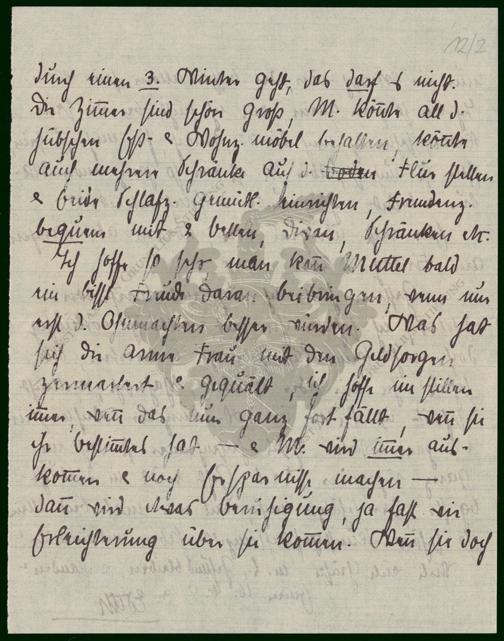 12/2
durch einen 3. Winter geht, das darf es nicht.
Die Zimer sind schön groß, M. könte all d.
hübschen Eß- & Wohnz. möbel behalten, könte
auch mehrere Schränke auf d. Flur stellen
& beide Schlafz. gemütl. einrichten, Fremdenz.
bequem mit 2 betten, divan, Schränken etc.
Ich hoffe so sehr man kan Muttel bald
ein bissl Freude daran beibringen, wenn nur
erst d. Ohnmachten besser würden. Was hat
sich die arme Frau mit den Geldsorgen
zermartert & gequält, ich hoffe im stillen
imer, wen das nun ganz fort fällt, wen sie
ihr bestimtes hat — & M. wird imer aus-
komen & noch Ersparnisse machen —
dan wird etwas beruhigung, ja fast ein
Erleichterung über sie komen. Wen sie doch